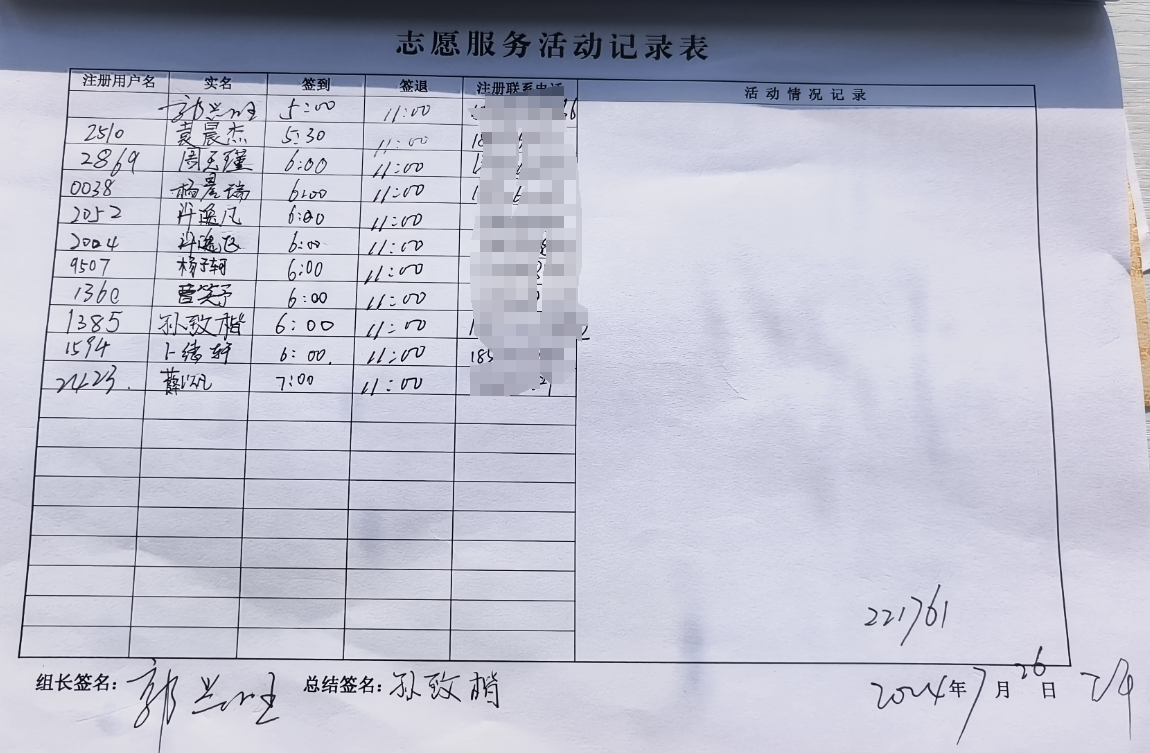 志愿服务活动记录表
注册用户名 实名 签到 签退 注册联系电话 活动情况记录
郭兰旺 5:00 11:00
2510 袁晨杰 5:30 11:00 18
2869 周至瑾 6:00 11:00
0038 杨景瑞 6:00 11:00
2052 许逸凡 6:00 11:00
2004 许逸 6:00 11:00
9507 杨子轲 6:00 11:00
1360 曹笑予 6:00 11:00
1385 孙致楷 6:00 11:00 1
1594 卜绪轩 6:00 11:00 185
2423 薛 凡 7:00 11:00
221761
组长签名: 郭兰旺 总结签名: 孙致楷 2024年7月26日